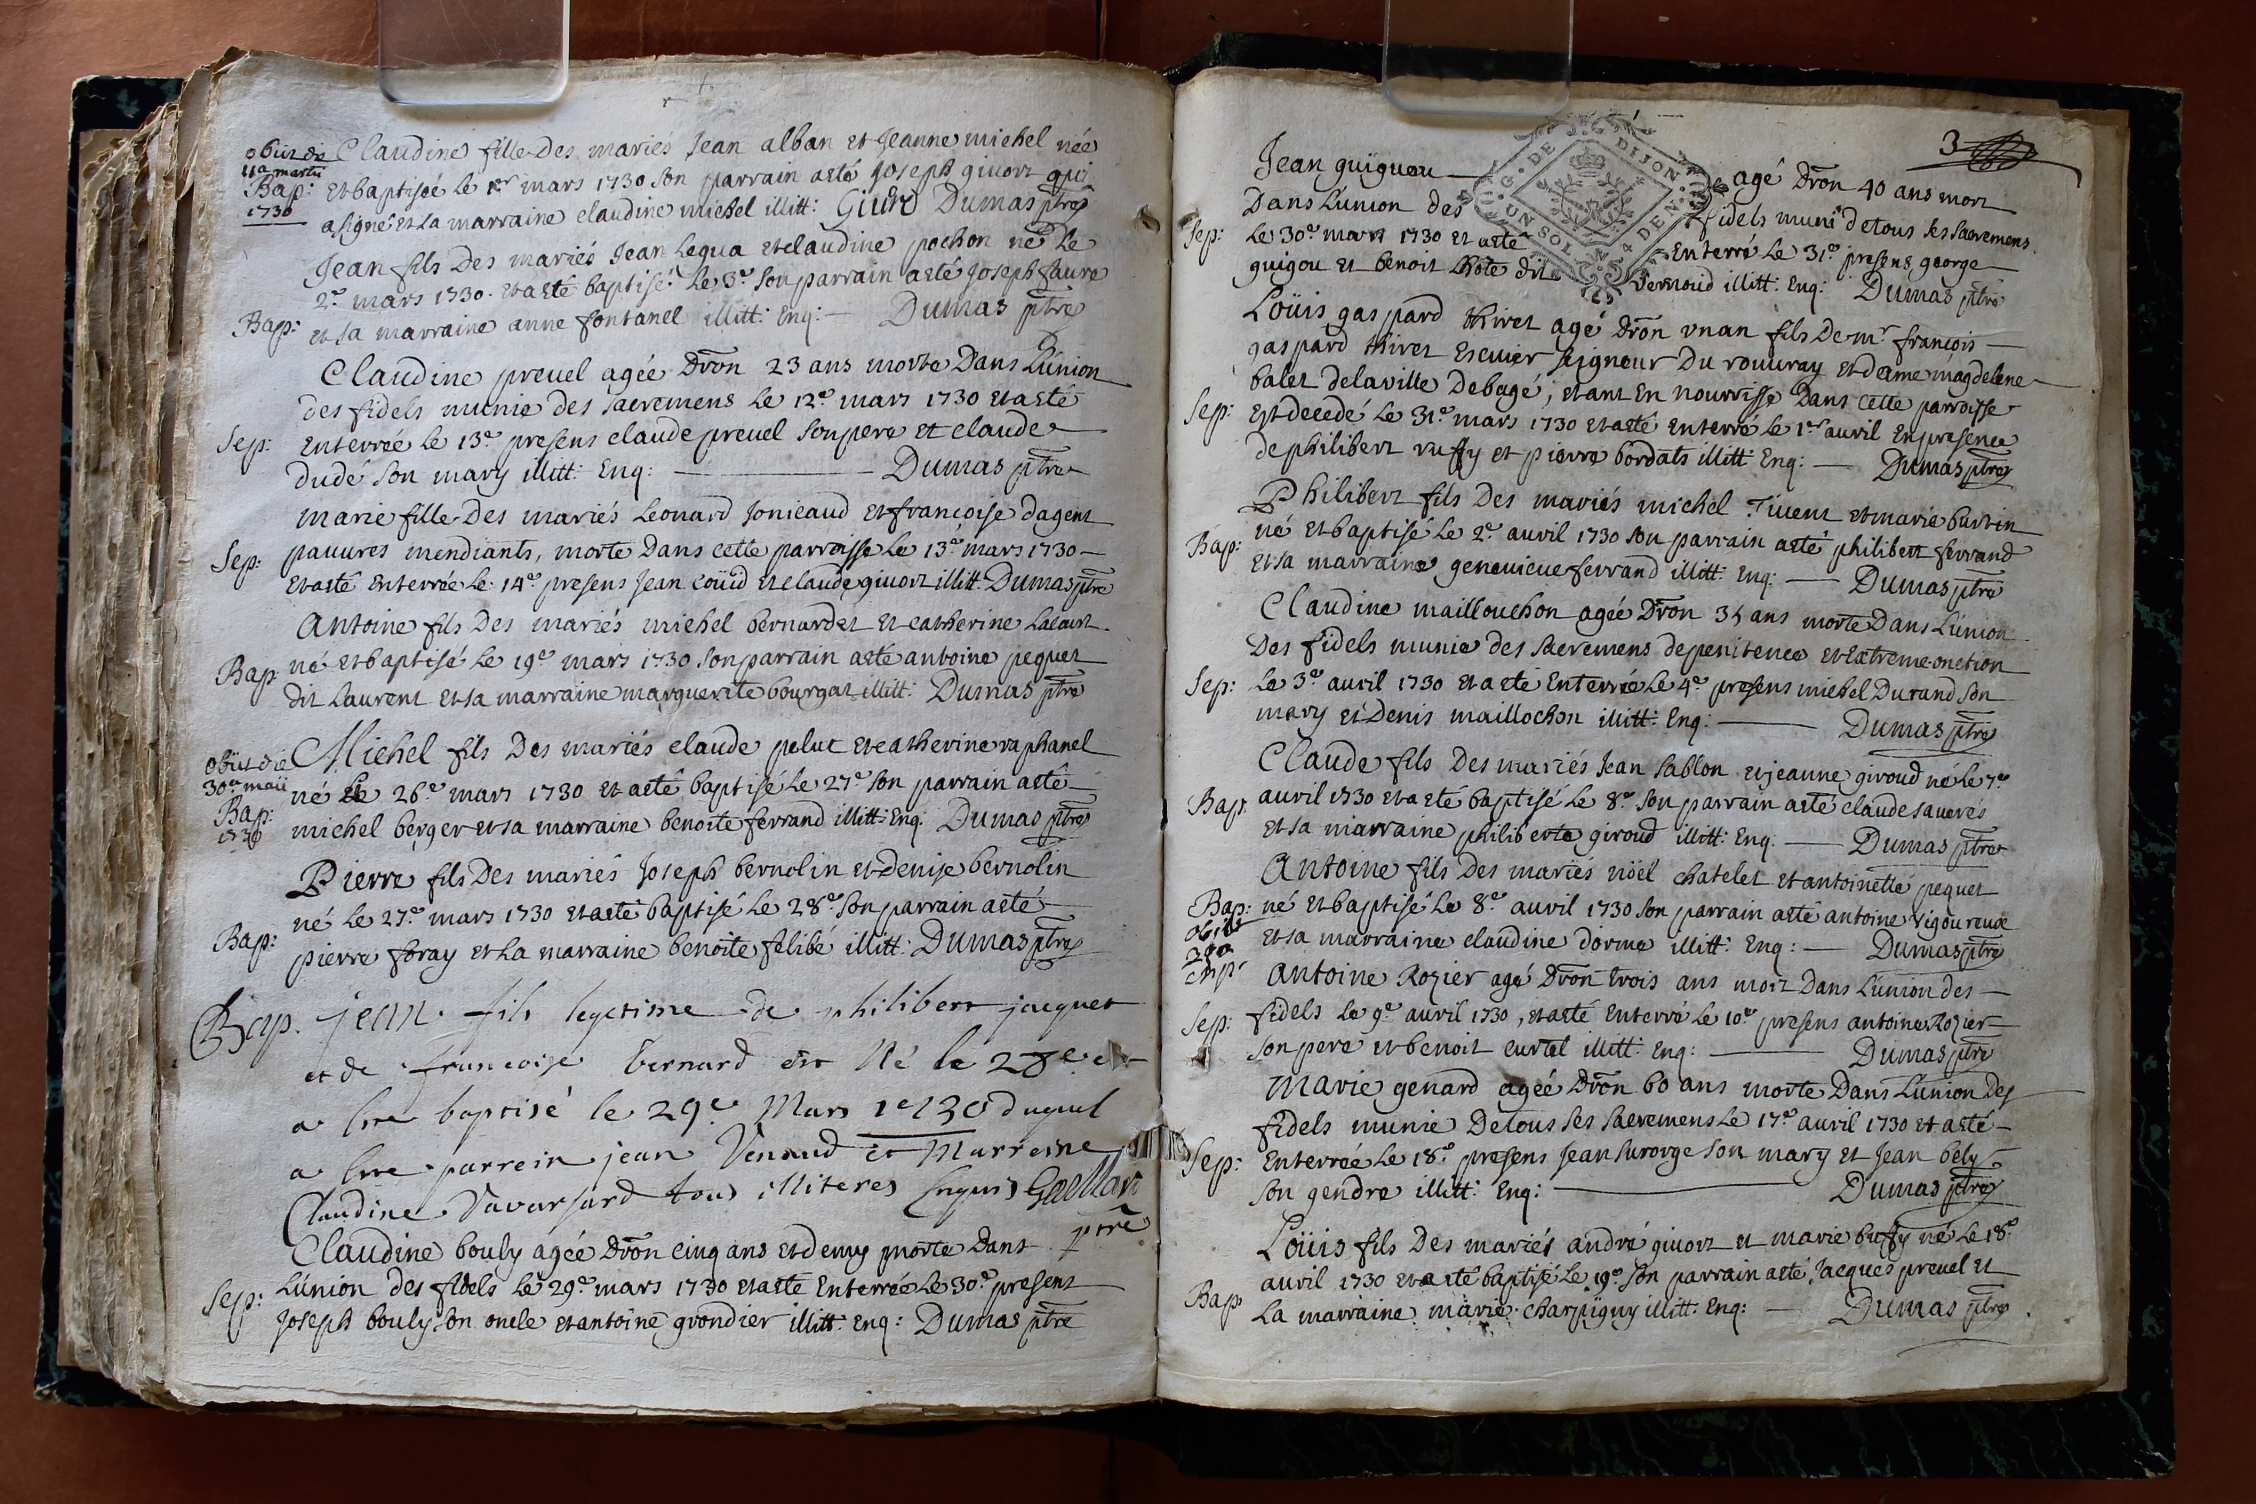 obiit die
11a martii
Bap:
1730
Claudine fille Des mariés Jean alban et Jeanne michel née
et baptisée le 1er mars 1730 son parrain a eté joseph givort qui
a signé et la marraine claudine michel illitt: Givord Dumas ptre
Jean fils Des mariés Jean Lequa et claudine pochon né le
2e mars 1730. et a eté baptisé le 3e son parrain a eté joseph faure
Bap: et sa marraine anne fontanel illitt: Enq: — Dumas ptre
Claudine prevel agée Dron 23 ans morte Dans L'union
des fidels munie des sacremens le 12e mars 1730 et a eté
Sep: Enterrée le 13e presens claude prevel son pere et claude
dudé son mary illitt: Enq: — Dumas ptre
Marie fille Des mariés Leonard Jonicaud et francoise dagent
Sep: pauvres mendiants, morte Dans cette parroisse le 13e mars 1730 —
et a eté enterrée le 14e presens Jean coüid et claude givort illitt Dumas ptre
Antoine fils Des mariés michel bernardet et catherine Lacourt
Bap né et baptisé le 19e mars 1730 son parrain a eté antoine pequet
dit Laurent et sa marraine marguerite bourgat illitt: Dumas ptre
obiit die
30a maii
Bap:
1730
Michel fils Des mariés claude pelut et catherine raphanel
né le 26e mars 1730 et a eté baptisé le 27e son parrain a eté
michel berger et sa marraine benoite ferrand illitt: Enq: Dumas ptre
Pierre fils Des mariés Joseph bernolin et denise bernolin
né le 27e mars 1730 et a eté baptisé le 28e son parrain a eté
Bap: pierre foray et la marraine benoite felibé illitt: Dumas ptre
Bap. jean fils legitime de philibert jacquet
et de francoise bernard est Né le 28e et
a bapticé le 29e Mars 1730 duquel
a parrein jean Venaud et Marreine
Claudine Savarsard tous illiteres Enquis
ptre
Claudine bouly agée Dron cinq ans et demy morte Dans
Sep: L'union des fidels le 29e mars 1730 et a eté Enterrée le 30e present
Joseph bouly son oncle et antoine grondier illitt: Enq: Dumas ptre
3
G. DE DIJON. UN SOL 4 DEN.
Jean guiguou — agé Dron 40 ans mort
Dans L'union des fidels muni de tous ses sacremens
Sep: le 30e mars 1730 et a eté Enterré le 31e presens george
guigou et benoit Lhote dit Vernoud illitt: Enq: Dumas ptre
Loüis gaspard thiret agé Dron un an fils De mr françois —
gaspard thiret Escuier seigneur Du rouvray et dame magdelene
balet de la ville De bagé, etant En nourrisse Dans cette parroisse
Sep: est decedé le 31e mars 1730 et a eté enterré le 1er avril En presence
de philibert ruffy et pierre bordats illitt: Enq: — Dumas ptre
Philibert fils Des mariés michel Tivent et marie burtin
Bap: né et baptisé le 2e avril 1730 son parrain a eté philibert ferrand
et sa marraine genevieve ferrand illitt: Enq: — Dumas ptre
Claudine maillouchon agée Dron 35 ans morte Dans L'union
Des fidels munie des sacremens de penitence et Extreme onction
Sep: le 3e avril 1730 et a eté Enterrée le 4e presens michel Durand son
mary et Denis maillochon illitt: Enq: — Dumas ptre
Claude fils Des mariés Jean Sablon et jeanne giroud né le 7e
Bap. avril 1730 et a eté baptisé le 8e son parrain a eté claude saverés
et sa marraine philiberte giroud illitt: Enq. — Dumas ptre
Antoine fils Des mariés nöël chatelet et antoinette pequet
Bap: né et baptisé le 8e avril 1730 son parrain a eté antoine rigoureux
obiit
et sa marraine claudine dorme illitt: Enq: — Dumas ptre
Antoine Rozier agé Dron trois ans mort Dans L'union des —
Sep: fidels le 9e avril 1730, et a eté Enterré le 10e presens antoine Rozier
son pere et benoit curtel illitt: Enq: — Dumas ptre
Marie genard agée Dron 60 ans morte Dans L'union Des
fidels munie De tous ses sacremens le 17e avril 1730 et a eté —
Sep: Enterrée le 18e presens Jean surorge son mary et Jean bely
son gendre illitt: Enq: — Dumas ptre
Loüis fils Des mariés andré givort et marie buffy né le 18e
avril 1730 et a eté baptisé le 19e son parrain a eté Jacques prevel et
Bap La marraine marie charpigny illitt: Enq: — Dumas ptre